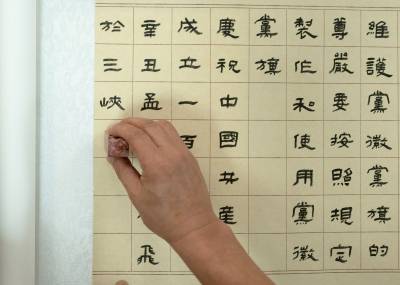 維護黨徽黨旗的
尊嚴要按照規定
製作和使用黨徽
黨旗
慶祝中國共產
成立一百
辛丑孟飛
於三峽